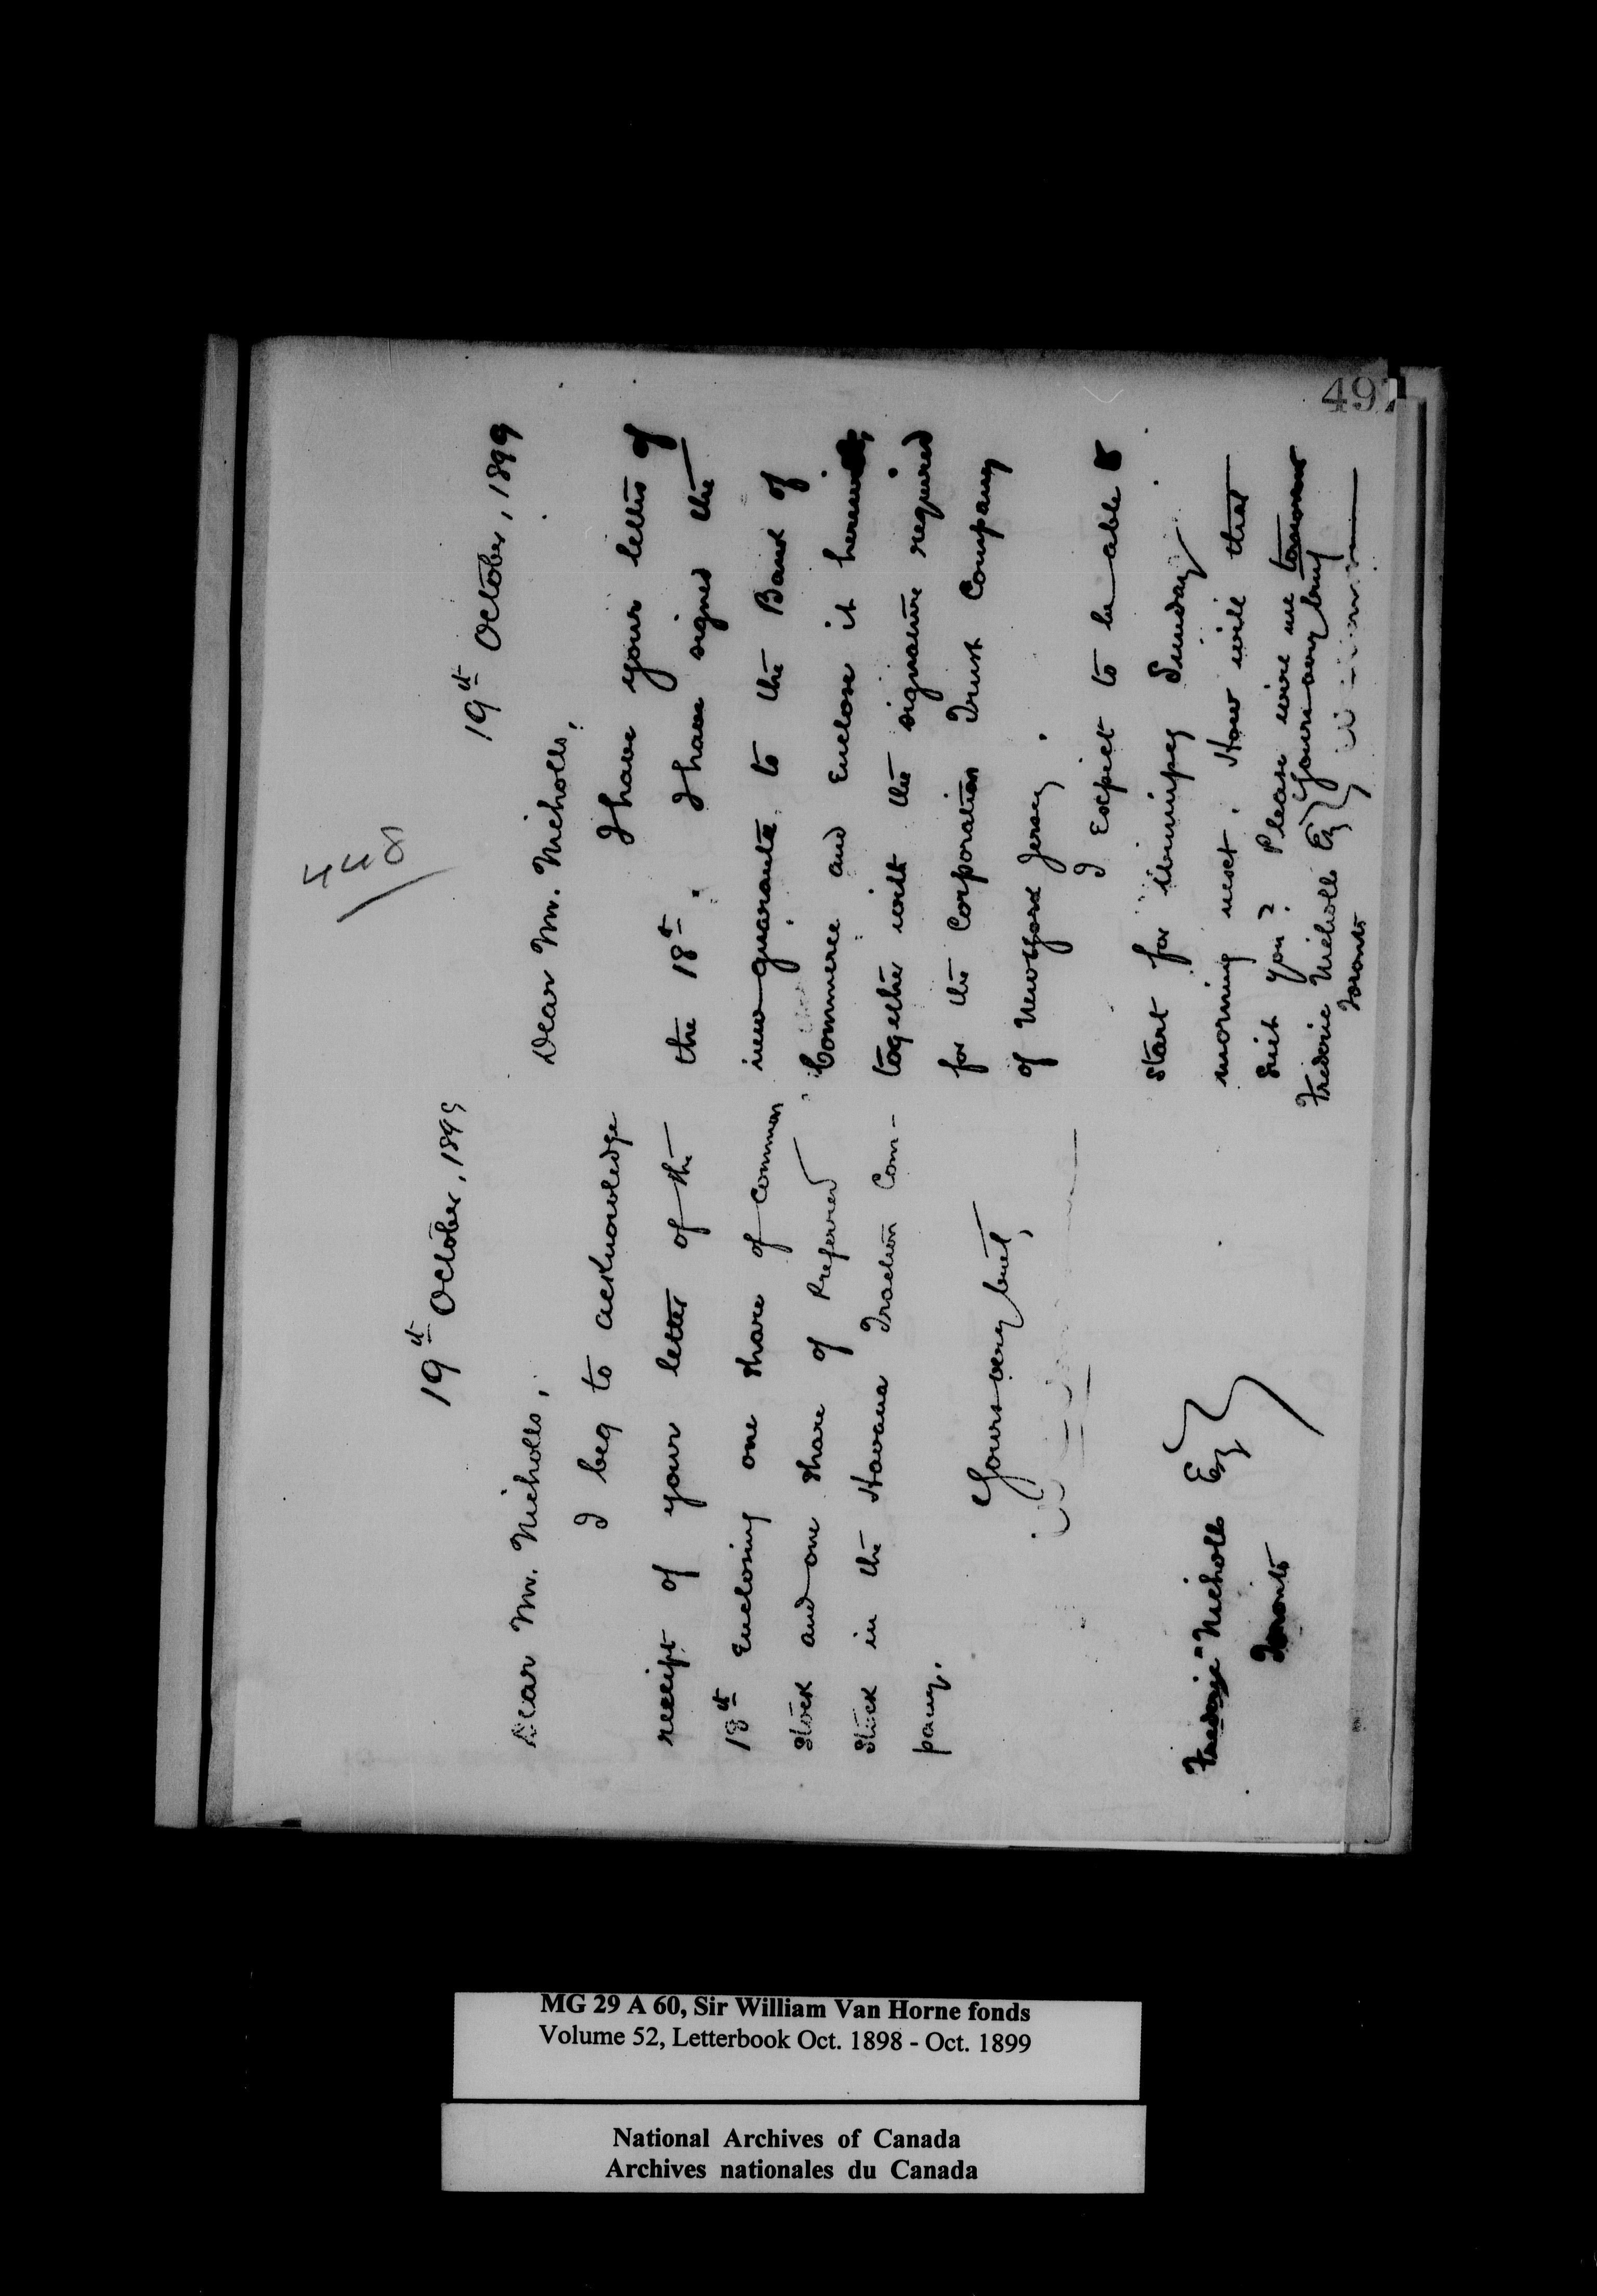 448
497
19th October, 1899
Dear Mr. Nicholls,
I beg to acknowledge
receipt of your letter of the
18th Enclosing one share of Common
Stock and one share of Preferred
Stock in the Havana Traction Com-
pany.
Yours very truly,
Frederic Nicholls Esq
Toronto
19th October, 1899
Dear Mr. Nicholls,
I have your letters of
the 18th. I have signed the
new guarantee to the Bank of
Commerce and Enclose it herewith,
together with the signature required
for the Corporation Trust Company
of New Jersey.
I Expect to be able to
start for Winnipeg Sunday
morning next. How will that
suit you? Please wire me tomorrow
Yours very truly
Frederic Nicholls Esq
Toronto
MG 29 A 60, Sir William Van Horne fonds
Volume 52, Letterbook Oct. 1898 - Oct. 1899
National Archives of Canada
Archives nationales du Canada